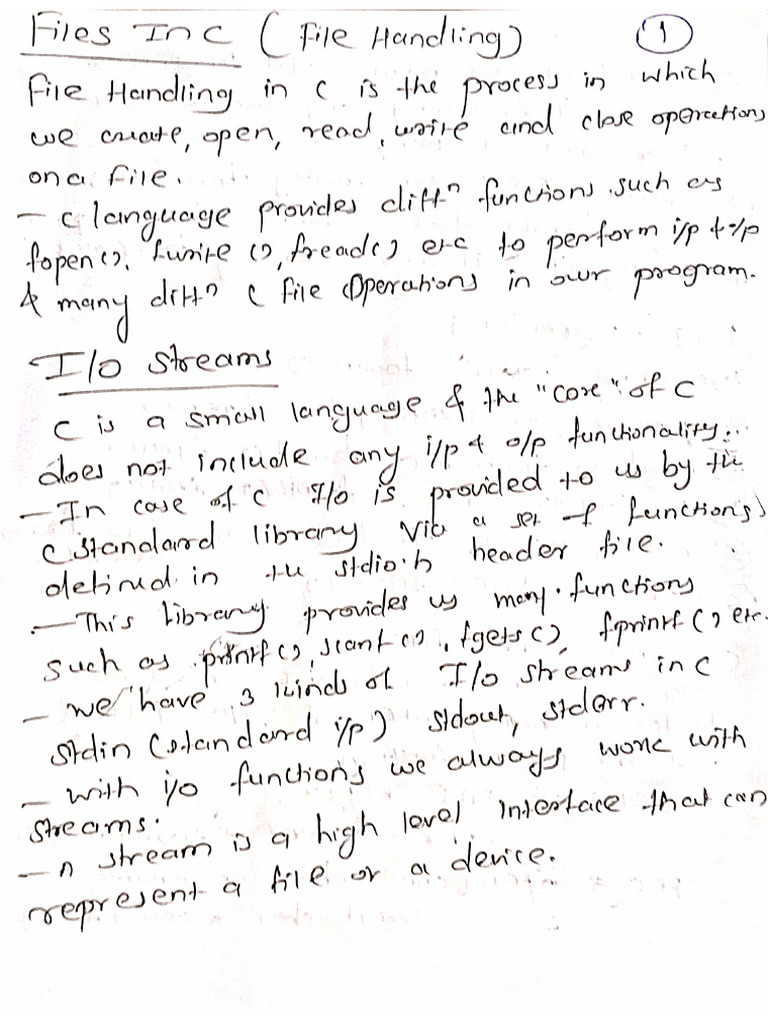 Files In C ( File Handling) 1
File Handling in C is the process in which
we create, open, read, write and close operations
on a file.
— C language provides diffn functions such as
fopen(), fwrite (), fread() etc to perform i/p & o/p
& many diffn C file Operations in our program.
I/o Streams
C is a small language & the "core" of C
does not include any i/p & o/p functionality.
— In case of C I/o is provided to us by the
C standard library via a set of functions
defined in the stdio.h header file.
— This library provides us many functions
such as printf(), scanf(), fgets(), fprintf() etc.
— we have 3 kinds of I/o streams in C
stdin (standard i/p) stdout, stderr.
— with i/o functions we always work with
streams.
— A stream is a high level interface that can
represent a file or a device.